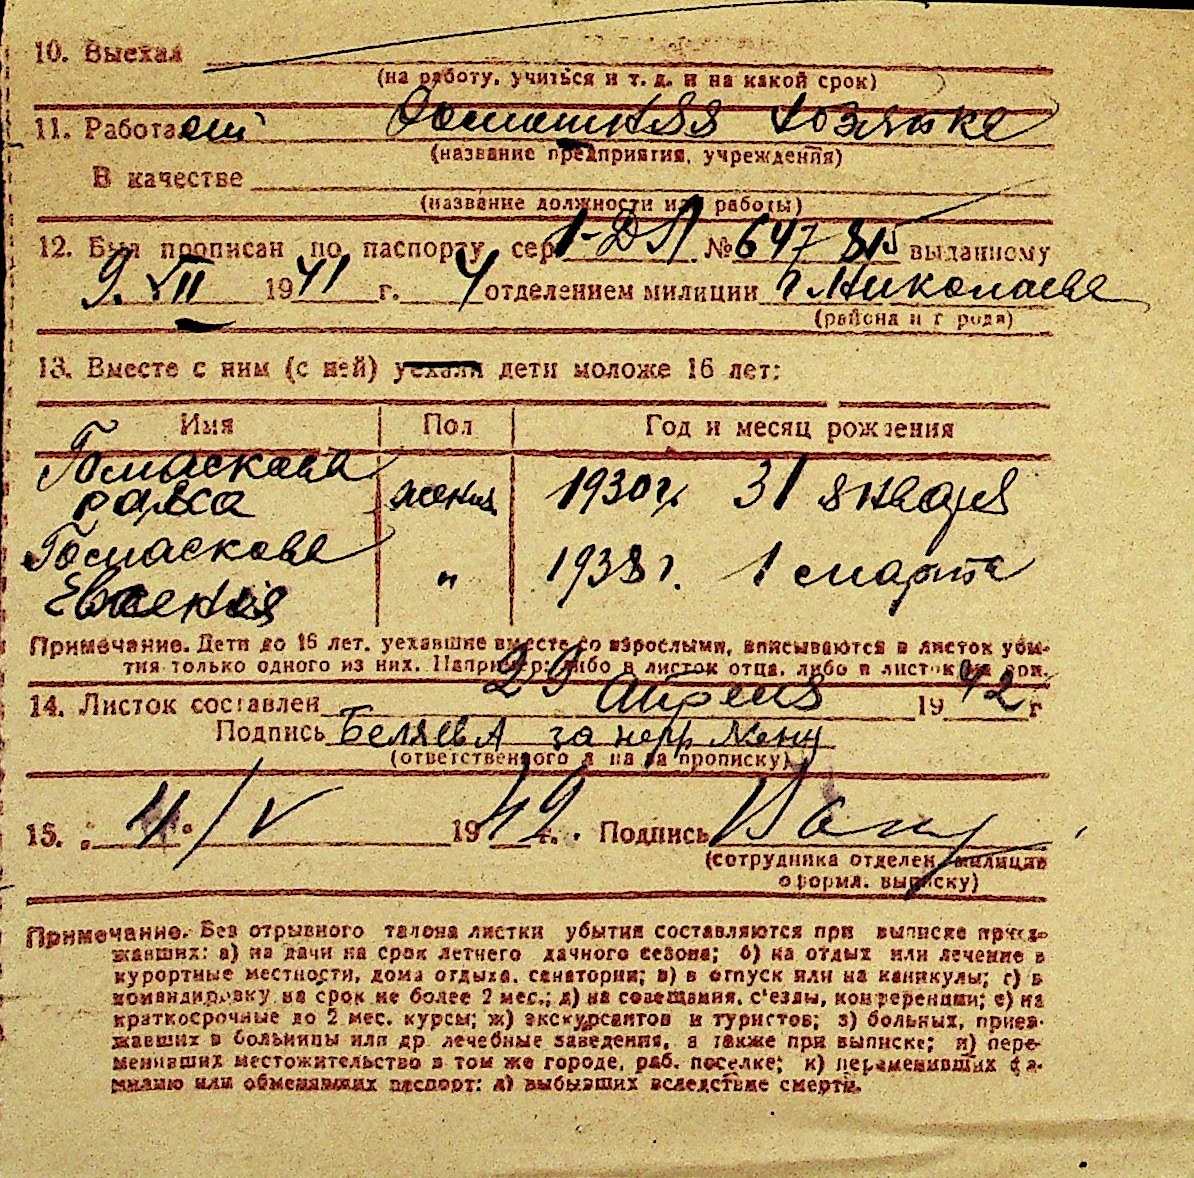 10. Выехал
(на работу, учиться и т. д. и на какой срок)
11. Работает Домашняя хозяйке
(название предприятия, учреждения)
В качестве
(название должности или работы)
12. Был прописан по паспорту сер. 1-ДЛ № 647815 выданному
9. VII 1941 г. 4 отделением милиции г. Николаева
(района и города)
13. Вместе с ним (с ней) уехали дети моложе 16 лет:
Имя Пол Год и месяц рождения
Гомаскова
Раиса женя 1930 г. 31 января
Гомаскова
Евгения " 1938 г. 1 марта
Примечание. Дети до 16 лет, уехавшие вместе со взрослыми, вписываются в листок убы-
тия только одного из них. Например: либо в листок отца, либо в листок
14. Листок составлен 29 Апреля 1942 г
Подпись Беляева за
(ответственного за прописку)
15. 4/V 1942 г. Подпись
(сотрудника отделен. милиции
оформл. выписку)
Примечание. Без отрывного талона листки убытия составляются при выписке приез-
жавших: а) на дачи на срок летнего дачного сезона; б) на отдых или лечение в
курортные местности, дома отдыха, санатории; в) в отпуск или на каникулы; г) в
командировку на срок не более 2 мес.; д) на совещания, с'езды, конференции; е) на
краткосрочные до 2 мес. курсы; ж) экскурсантов и туристов; з) больных, приез-
жавших в больницы или др. лечебные заведения, а также при выписке; и) пере-
менивших местожительство в том же городе, раб. поселке; к) переменивших фа-
милию или обменявших паспорт; л) выбывших вследствие смерти.